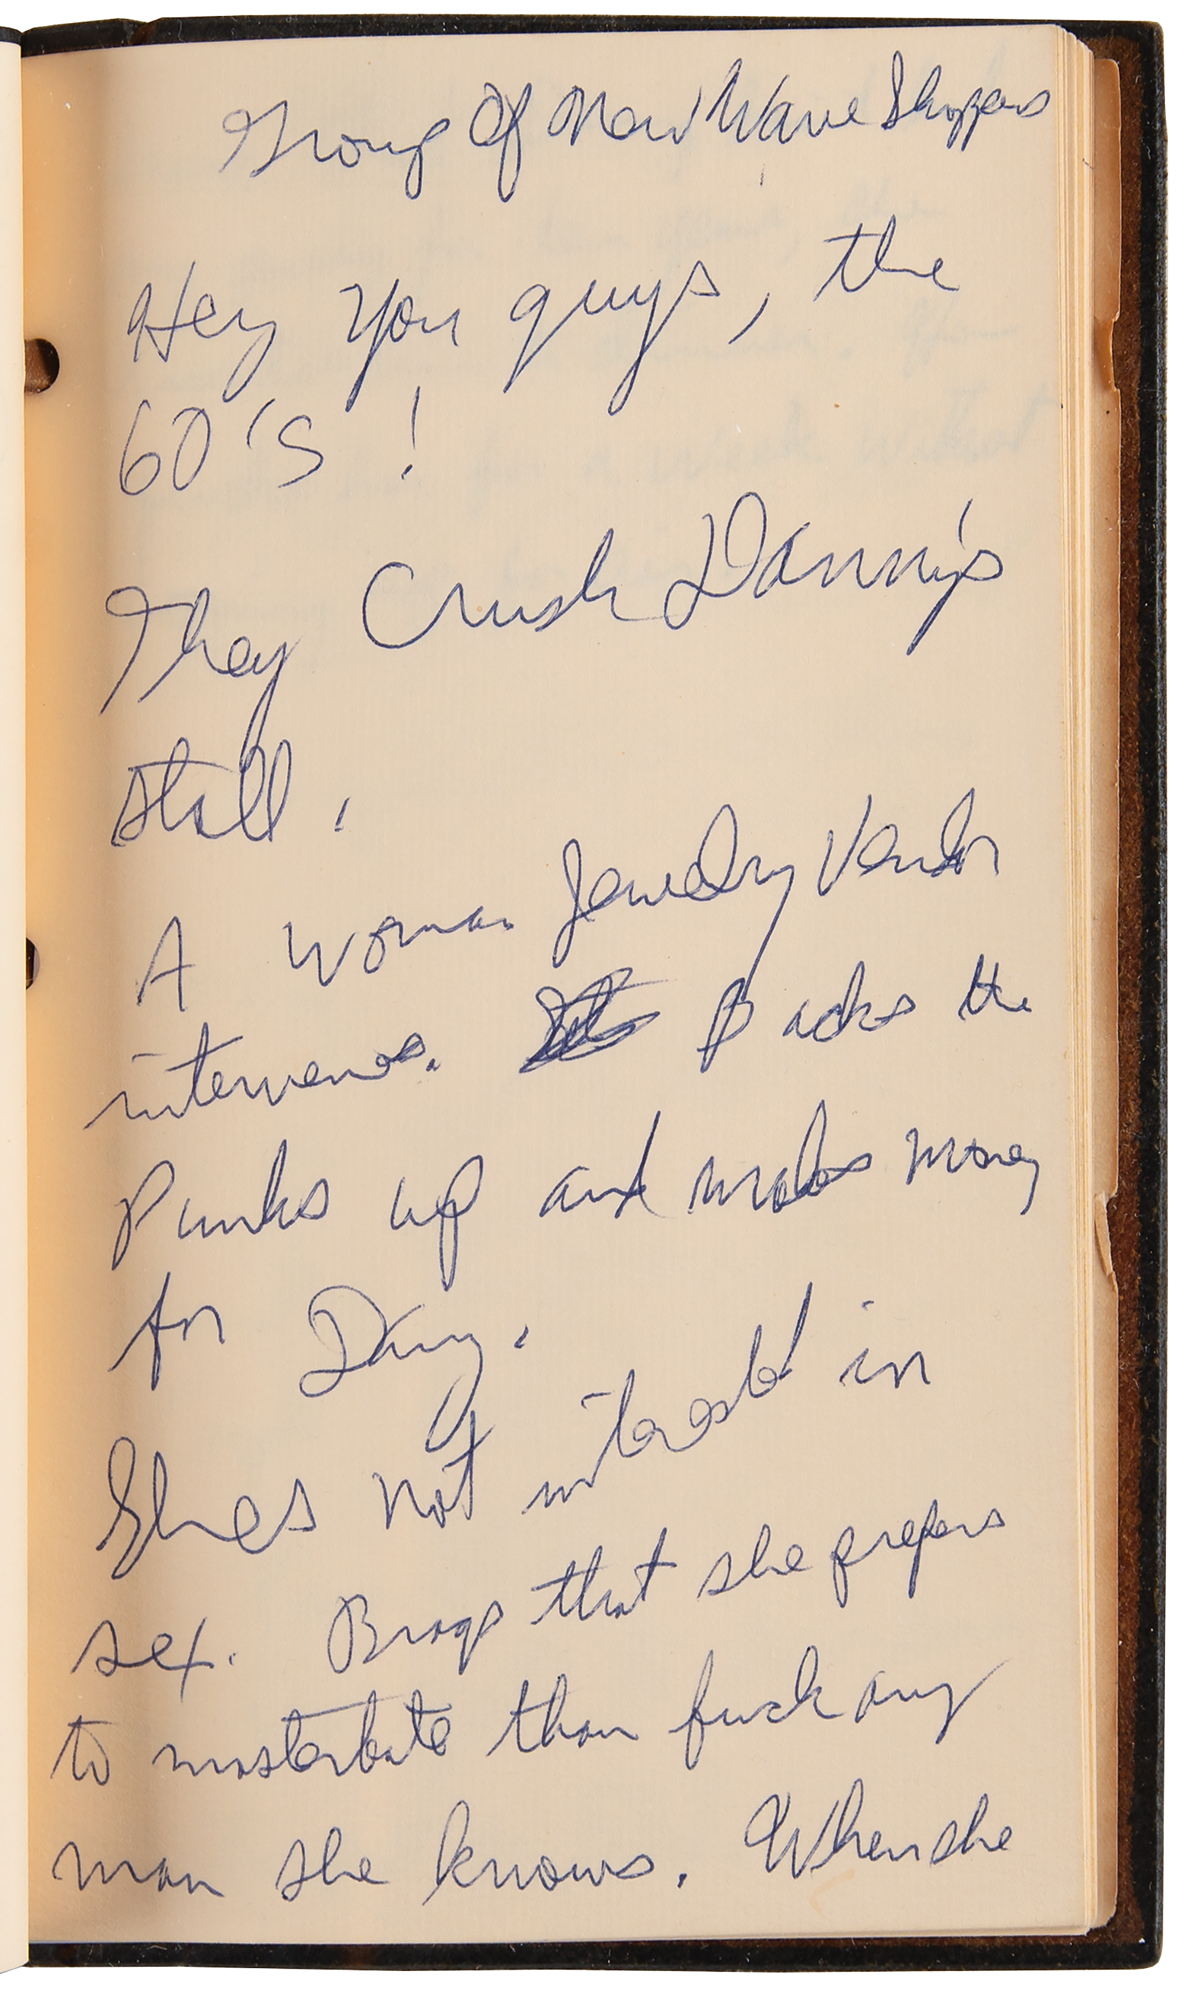 Group Of New Wave Shoppers
Hey you guys, the
60's!
They Crush Danny's
stall.
A woman Jewelry Vendor
intervenes. Backs the
Punks up and makes money
for Dany.
Shes not interested in
sex. Brags that she prefers
to masterbate than fuck any
man she knows. When she